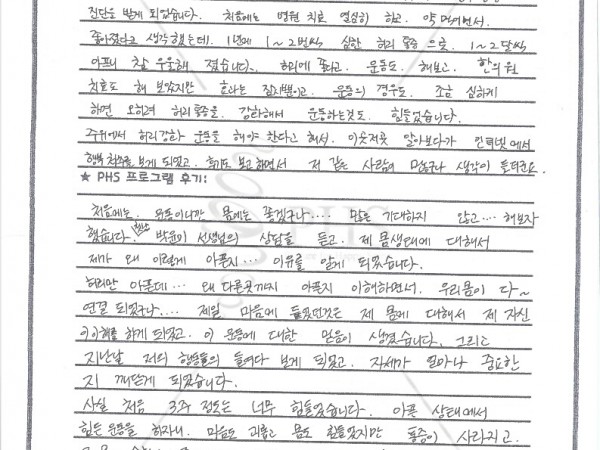 진단도 받게 되었습니다. 처음에는 병원 치료 열심히 하고. 약 먹으면서.
좋아졌다고 생각했는데. 1년에 1~2번씩 심한 허리 통증으로. 1~2달씩
아프니 참 우울해 졌습니다. 허리에 좋다고. 운동도. 해보고. 한의원
치료도 해 보았지만 효과는 잠시뿐이고. 운동의 경우도. 조금 심하게
하면 오히려 허리통증을. 강화해서 운동하는것도. 힘들었습니다.
주위에서 허리강화 운동을 해야 한다고 해서. 이곳저곳 알아보다가 인터넷에서
행복척추를 보게 되었고. 후기도 보고 하면서 저 같은 사람이 많구나 생각이 들더군요.
★ PHS 프로그램 후기:
처음에는. 운동이니깐 몸에는 좋겠구나.... 많은 기대하지 않고.... 해보자
했습니다. 박윤미 선생님의 상담을 듣고. 제 몸상태에 대해서
제가 왜 이렇게 아픈지... 이유를 알게 되었습니다.
허리만 아픈데... 왜 다른곳까지 아픈지 이해하면서. 우리몸이 다~
연결 되었구나.... 제일 마음에 들었던것은 제 몸에 대해서 제 자신
이 이해를 하게 되었고. 이 운동에 대한 믿음이 생겼습니다. 그리고
지난날 저의 행동들의 들여다 보게 되었고. 자세가 얼마나 중요한
지 깨닫게 되었습니다.
사실 처음 3주 정도는 너무 힘들었습니다. 아픈 상태에서
힘든 운동을 하자니. 마음도 괴롭고 몸도 힘들었지만 통증이 사라지고.